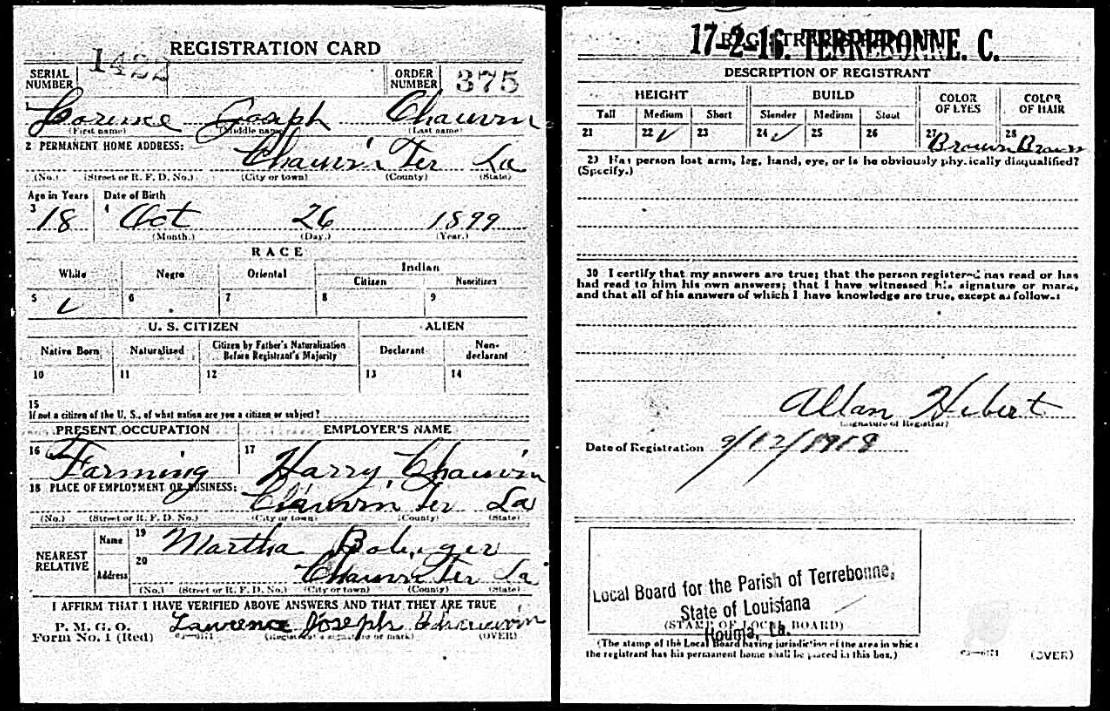 REGISTRATION CARD
SERIAL NUMBER 1422 ORDER NUMBER 375
1 Lorence Joseph Chauvin
(First name) (Middle name) (Last name)
2 PERMANENT HOME ADDRESS:
Chauvin Ter La
(No.) (Street or R. F. D. No.) (City or town) (County) (State)
Age in Years Date of Birth
3 18 4 Oct 26 1899
(Month.) (Day.) (Year.)
RACE
White Negro Oriental Indian
Citizen Noncitizen
5 ✓ 6 7 8 9
U. S. CITIZEN ALIEN
Native Born Naturalized Citizen by Father's Naturalization Before Registrant's Majority Declarant Non-declarant
10 11 12 13 14
15
If not a citizen of the U. S., of what nation are you a citizen or subject?
PRESENT OCCUPATION EMPLOYER'S NAME
16 Farming 17 Harry Chauvin
18 PLACE OF EMPLOYMENT OR BUSINESS:
Chauvin Ter La
(No.) (Street or R. F. D. No.) (City or town) (County) (State)
NEAREST RELATIVE Name 19 Martha
Address 20 Chauvin Ter La
(No.) (Street or R. F. D. No.) (City or town) (County) (State)
I AFFIRM THAT I HAVE VERIFIED ABOVE ANSWERS AND THAT THEY ARE TRUE
P. M. G. O.
Form No. 1 (Red) 03—6171 Lawrence Joseph Chauvin
(Registrant's signature or mark) (OVER)
17-2-16. TERREBONNE. C.
DESCRIPTION OF REGISTRANT
HEIGHT BUILD COLOR OF EYES COLOR OF HAIR
Tall Medium Short Slender Medium Stout
21 22 ✓ 23 24 ✓ 25 26 27 Brown 28 Brown
29 Has person lost arm, leg, hand, eye, or is he obviously physically disqualified?
(Specify.)
30 I certify that my answers are true; that the person registered has read or has
had read to him his own answers; that I have witnessed his signature or mark,
and that all of his answers of which I have knowledge are true, except as follows:
Allan Hebert
(Signature of Registrar)
Date of Registration 9/12/1918
Local Board for the Parish of Terrebonne,
State of Louisiana
(STAMP OF LOCAL BOARD)
Houma, La.
(The stamp of the Local Board having jurisdiction of the area in which
the registrant has his permanent home shall be placed in this box.)
03—6171 (OVER)